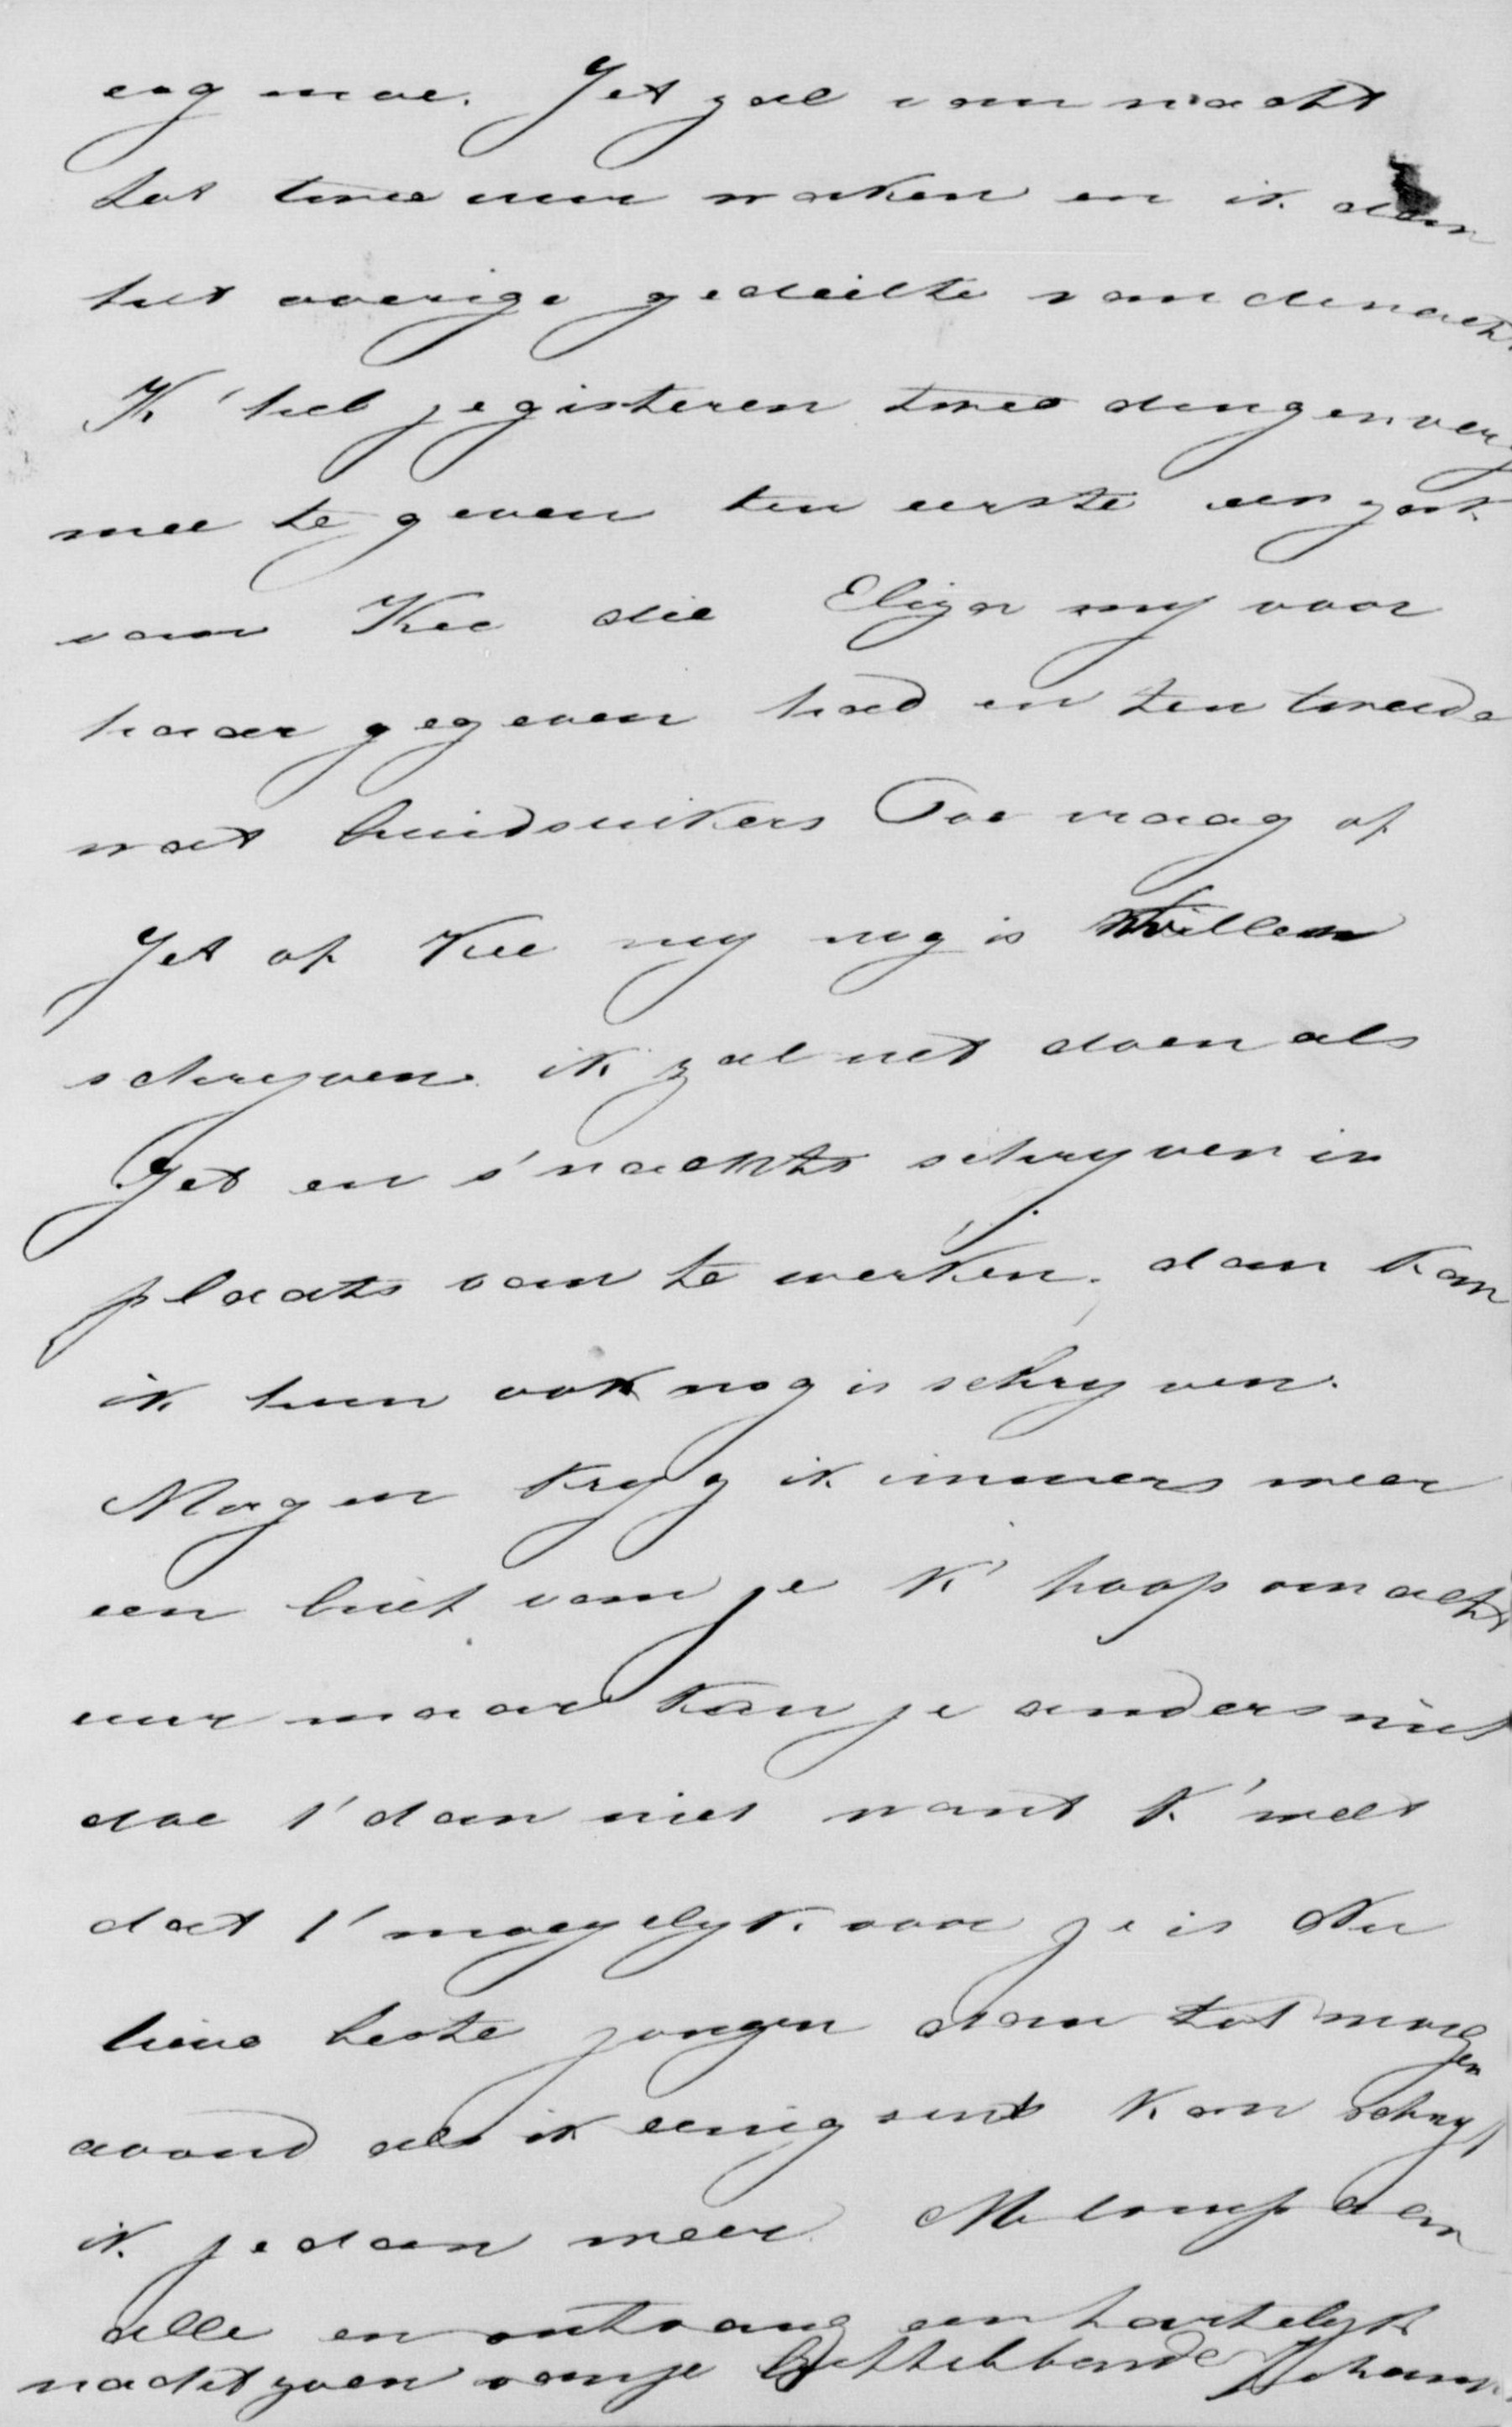 erg moe. Jet zal van nacht
tot twee uur waken en ik dan
het overige gedeelte van de nacht
K' heb je gisteren twee dingen verg
mee te geven ten eerste een zak
van Kee die Eliza my voor
haar gegeven had en ten tweede
wat bruidsuikers Toe vraag of
Jet of Kee my nog is willen
schryven. ik zal net doen als
Jet en s'nachts schryven in
plaats van te werken. dan kan
ik hun ook nog is schryven.
Morgen kryg ik immers weer
een brief van je K' hoop om acht
uur maar kan je anders niet
doe t' dan niet want K' weet
dat t' moeyelyk voor je is Nu
lieve beste jongen dan tot morgen
avond als ik eenigzints kan schryf
ik je dan weer. M. comp aan
alle en ontvang een hartelyk
nachtzoen van je liefhebbende Johanna